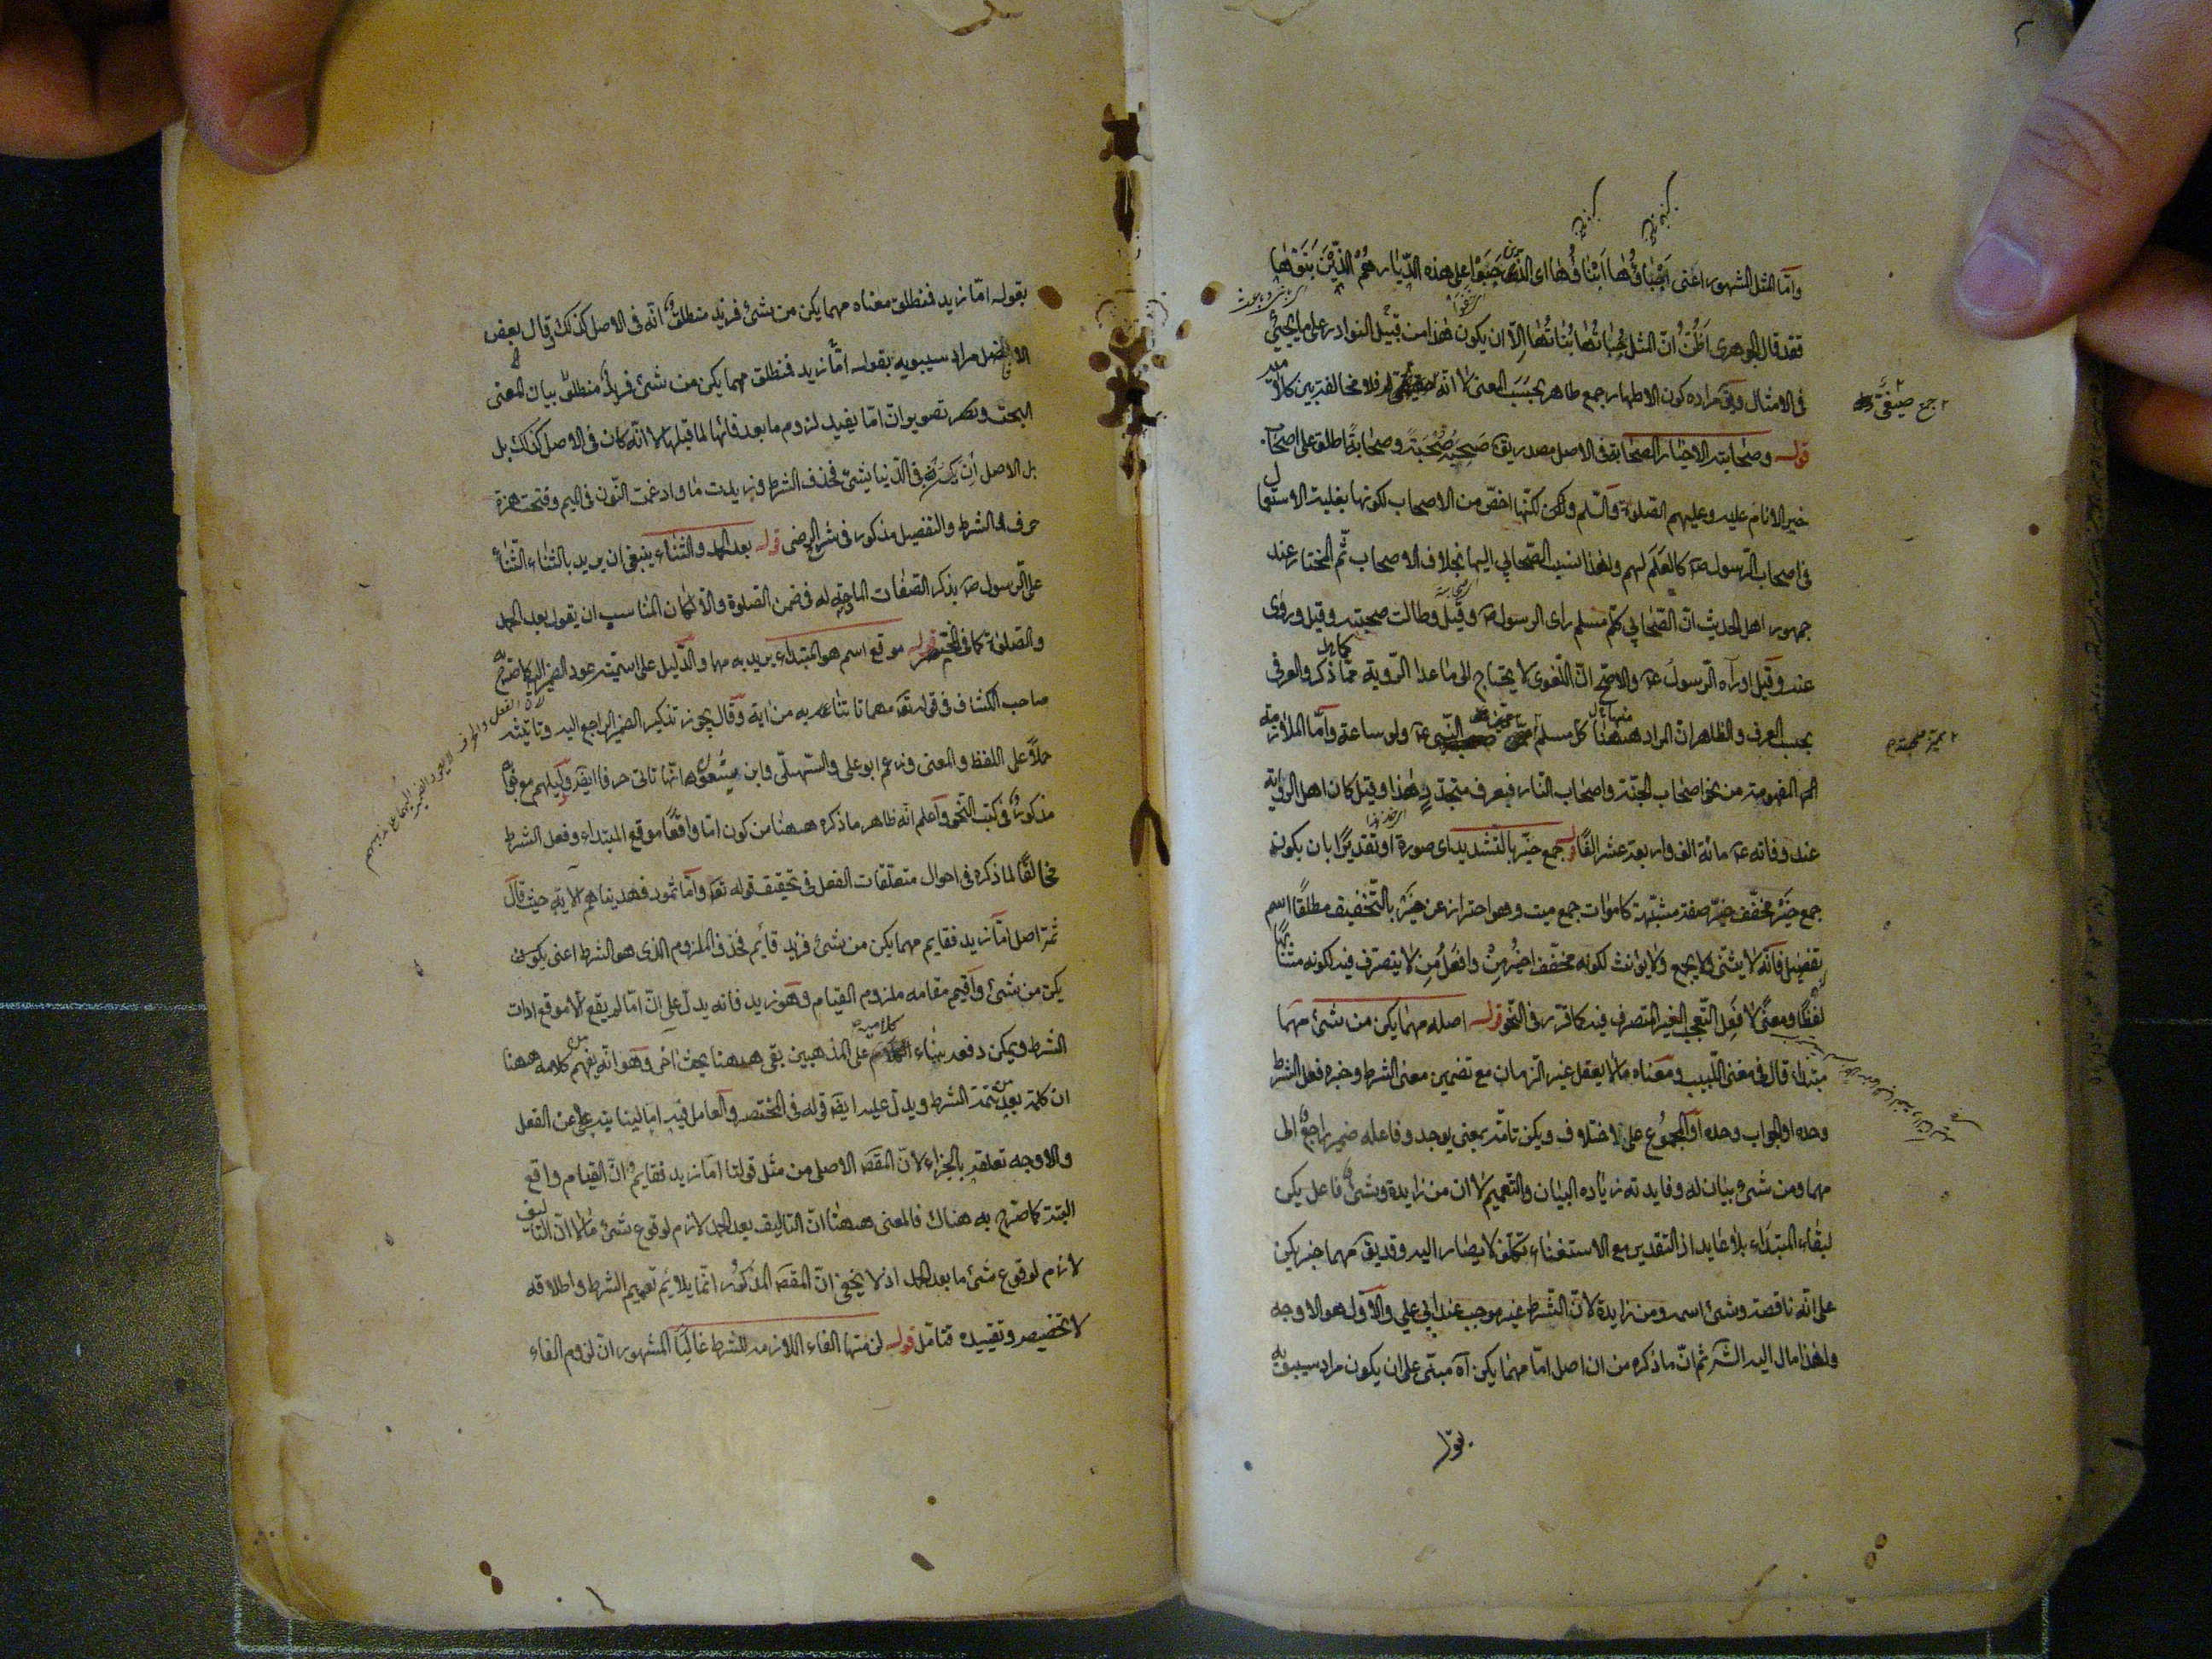 وامّا المثل المشهور اعنى اجناؤُها ابناؤُها اى الذين جنوا على هذه الدّيار هم الذين بنوها
فقد قال الجوهرى اظنّ انّ المثل جناتها بناتها الّا ان يكون هذا من قبيل النوادر على ما يجيئ
فى الامثال وفى مراده كون الاطهار جمع طاهر بحسب المعنى لا انه له فلا مخالفة بين كلاميه
قوله وصحابته الاخيار الصحابة فى الاصل مصدر يق صحبه صُحْبَةً وصحابةً اطلق على اصحاب
خير الانام عليه وعليهم الصّلوة والسّلم ولكن لكنّها اخصّ من الاصحاب لكونها بغلبة الاستعمال
فى اصحاب الرّسول ص كالعَلَم لهم ولهذا نسب الصّحابى اليها بخلاف الاصحاب ثم المختار عند
جمهور اهل الحديث انّ الصّحابى كلّ مسلم راى الرسول ص وقيل وطالت صحبته وقيل وروى
عنه وقيل او رآه الرّسول ع والاصحّ انّ اللّغوى لا يحتاج الى ما عدا الرّوية ممّا ذكر والعرفى
بحسب العرف والظاهر انّ المراد ههنا كلّ مسلم النّبى ع ولو ساعة وامّا الملازمة
المفهومة من نحو اصحاب الجنّة واصحاب النار فبعرف متجدّد هذا وقيل كان اهل الرواية
عند وفاته ع مائة الف واربعة عشر الفًا قوله جمع خيّر بالتّشديد اى صورة او تقديرًا بان يكون
جمع خَيْر مخفّف خيّر صفة مشبّهة كاموات جمع ميت وهو احتراز عن خَيْر بالتّخفيف مطلقًا اسم
تفضيل فانّه لا يثنّى ولا يجمع ولا يؤنث لكونه مخفّف اخير من وافعل من لا يتصرّف فيه لكونه مشابهًا
لفظًا ومعنًى لافعل التّعجّب الغير المتصرف فيه كما قرّر فى النّحو قوله اصله مهما يكن من شئ مهما
مبتداء قال فى مغنى اللّبيب ومعناه ما لا يعقل غير الزمان مع تضمين معنى الشرط وخبره فعل الشرط
وحده او الجواب وحده او المجموع على الاختلاف ويكن تامّة بمعنى يوجد وفاعله ضمير راجع الى
مهما ومن شئ بيان له وفايدته زيادة البيان والتّعميم لا ان من زايدة وشئ فاعل يكن
لبقاء المبتداء بلا عايد اذ التقدير مع الاستغناء تكلّف لا يصار اليه وقد يق مهما خبر يكن
على انّه ناقصة وشئ اسمه ومن زايدة لانّ الشّرط غير موجب عند ابى على والاوّل هو الاوجه
ولهذا مال اليه الشّر ثم انّ ما ذكره من ان اصل امّا مهما يكن آه مبنّى على ان يكون مراد سيبويه
بقوله
جمع صيغى
بقوله امّا زيد فنطلق معناه مهما يكن من شئ فزيد منطلق انّه فى الاصل كذلك وقال بعض
الافاضل مراد سيبويه بقوله امّا زيد فنطلق مهما يكن من شئ فزيد منطلق بيان المعنى
البحت وتصوير انّ امّا يفيد لزوم ما بعد فائها لما قبلها لا انّه كان فى الاصل كذلك بل
بل الاصل ان يكن فى الدّنيا شئ فحذف الشرط وزيدت ما وادغمت النّون فى الميم وفتحت همزة
حرف الشرط والتفصيل مذكور فى شرح الرضى قوله بعد الحمد والثّناء ينبغى ان يريد بالثناء الثّناء
على الرّسول ص بذكر الصّفات المادحة له فى ضمن الصّلوة والّا لكان المناسب ان يقول بعد الحمد
والصّلوة كما فى المختصر قوله موقع اسم هو المبتداء يريد به مهما والدّليل على اسميّته عود الضمير اليه كما صرّح به
صاحب الكشّاف فى قوله تع مهما تاتنا به من اية وقال يجوز تذكير الضمير الراجع اليه وتانيثه
حملًا على اللفظ والمعنى وزعم ابو على والسّهيلى وابن يسعون انّها تاتى حرفا ايض ودليلهم مع جوابه
مذكور فى كتب النّحو واعلم انّه ظاهر ما ذكره ههنا من كون امّا واقعًا موقع المبتداء وفعل الشرط
مخالفًا لما ذكره فى احوال متعلّقات الفعل فى تحقيق قوله تع وامّا ثمود فهديناهم الاية حيث قال
ثمّة اصل امّا زيد فقايم مهما يكن من شئ فزيد قائم فحذف الملزوم الذى هو الشرط اعنى يكون
يكن من شئ واقيم مقامه ملزوم القيام وهو زيد فانه يدلّ على انّ امّا لم يقع الّا موقع ادات
الشرط ويمكن دفعه ببناء كلاميه على المذهبين بقى ههنا بحث آخر وهو انه يفهم من كلامه ههنا
ان كلمة بعد من تتمّة الشرط ويدلّ عليه ايض قوله فى المختصر والعامل فيه امّا لنيابته عن الفعل
والاوجه تعلقه بالجزاء لانّ المقص الاصلى من مثل قولنا امّا زيد فقايم انّ القيام واقع
البتة كما صرّح به هناك فالمعنى ههنا انّ التاليف بعد الحمد لازم لوقوع شئ ما لا انّ التاليف
لازم لوقوع شئ ما بعد الحمد اذ لا يخفى انّ المقص المذكور انّما يلائم تعميم الشرط واطلاقه
لا تخصيصه وتقييده فتامّل قوله لزمتها الفاء اللازمة للشرط غالبًا المشهور انّ لزوم الفاء